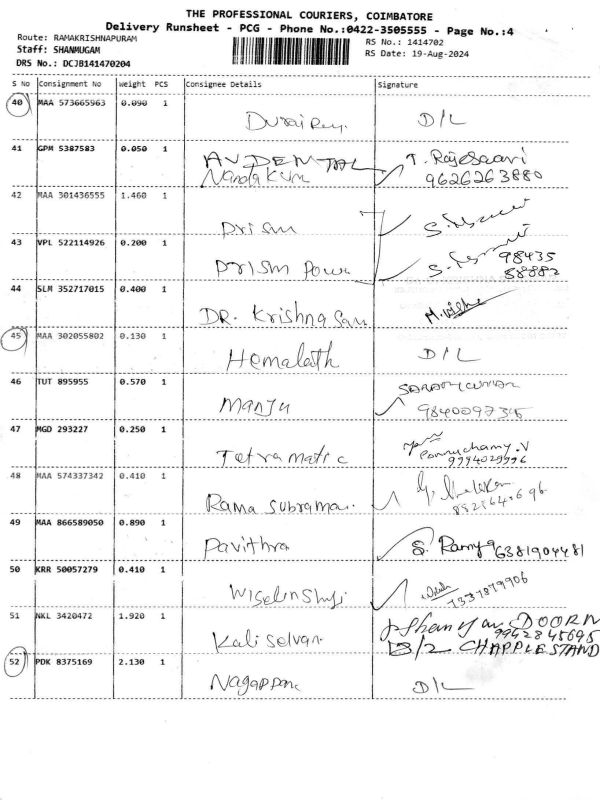 THE PROFESSIONAL COURIERS, COIMBATORE
Delivery Runsheet - PCG - Phone No.:0422-3505555 - Page No.:4
Route: RAMAKRISHNAPURAM
RS No.: 1414702
Staff: SHANMUGAM
RS Date: 19-Aug-2024
DRS No.: DCJB141470204
S No Consignment No Weight PCS Consignee Details Signature
40 MAA 573665963 0.090 1
Durai D/L
41 GPM 5387583 0.050 1
AV DENTAL T. Rajesaavi
Nanda Kum 9626263880
42 MAA 301436555 1.460 1
Prism S.
43 VPL 522114926 0.200 1
Prism Powa S. 98435
88882
44 SLM 352717015 0.400 1
DR. Krishna San
45 MAA 302055802 0.130 1
Hemalath D/L
46 TUT 895955 0.570 1
Manju
47 MGD 293227 0.250 1
Tetra Matic Ponnuchamy.V
9994029996
48 MAA 574337342 0.410 1
Rama Subraman
49 MAA 866589050 0.890 1
Pavithra S. Ramya 6381904481
50 KRR 50057279 0.410 1
7337879906
51 NKL 3420472 1.920 1
Kali Selvan DOOR N
9942845695
13/2 CHAPPLE STAND
52 PDK 8375169 2.130 1
Nagappan D/L